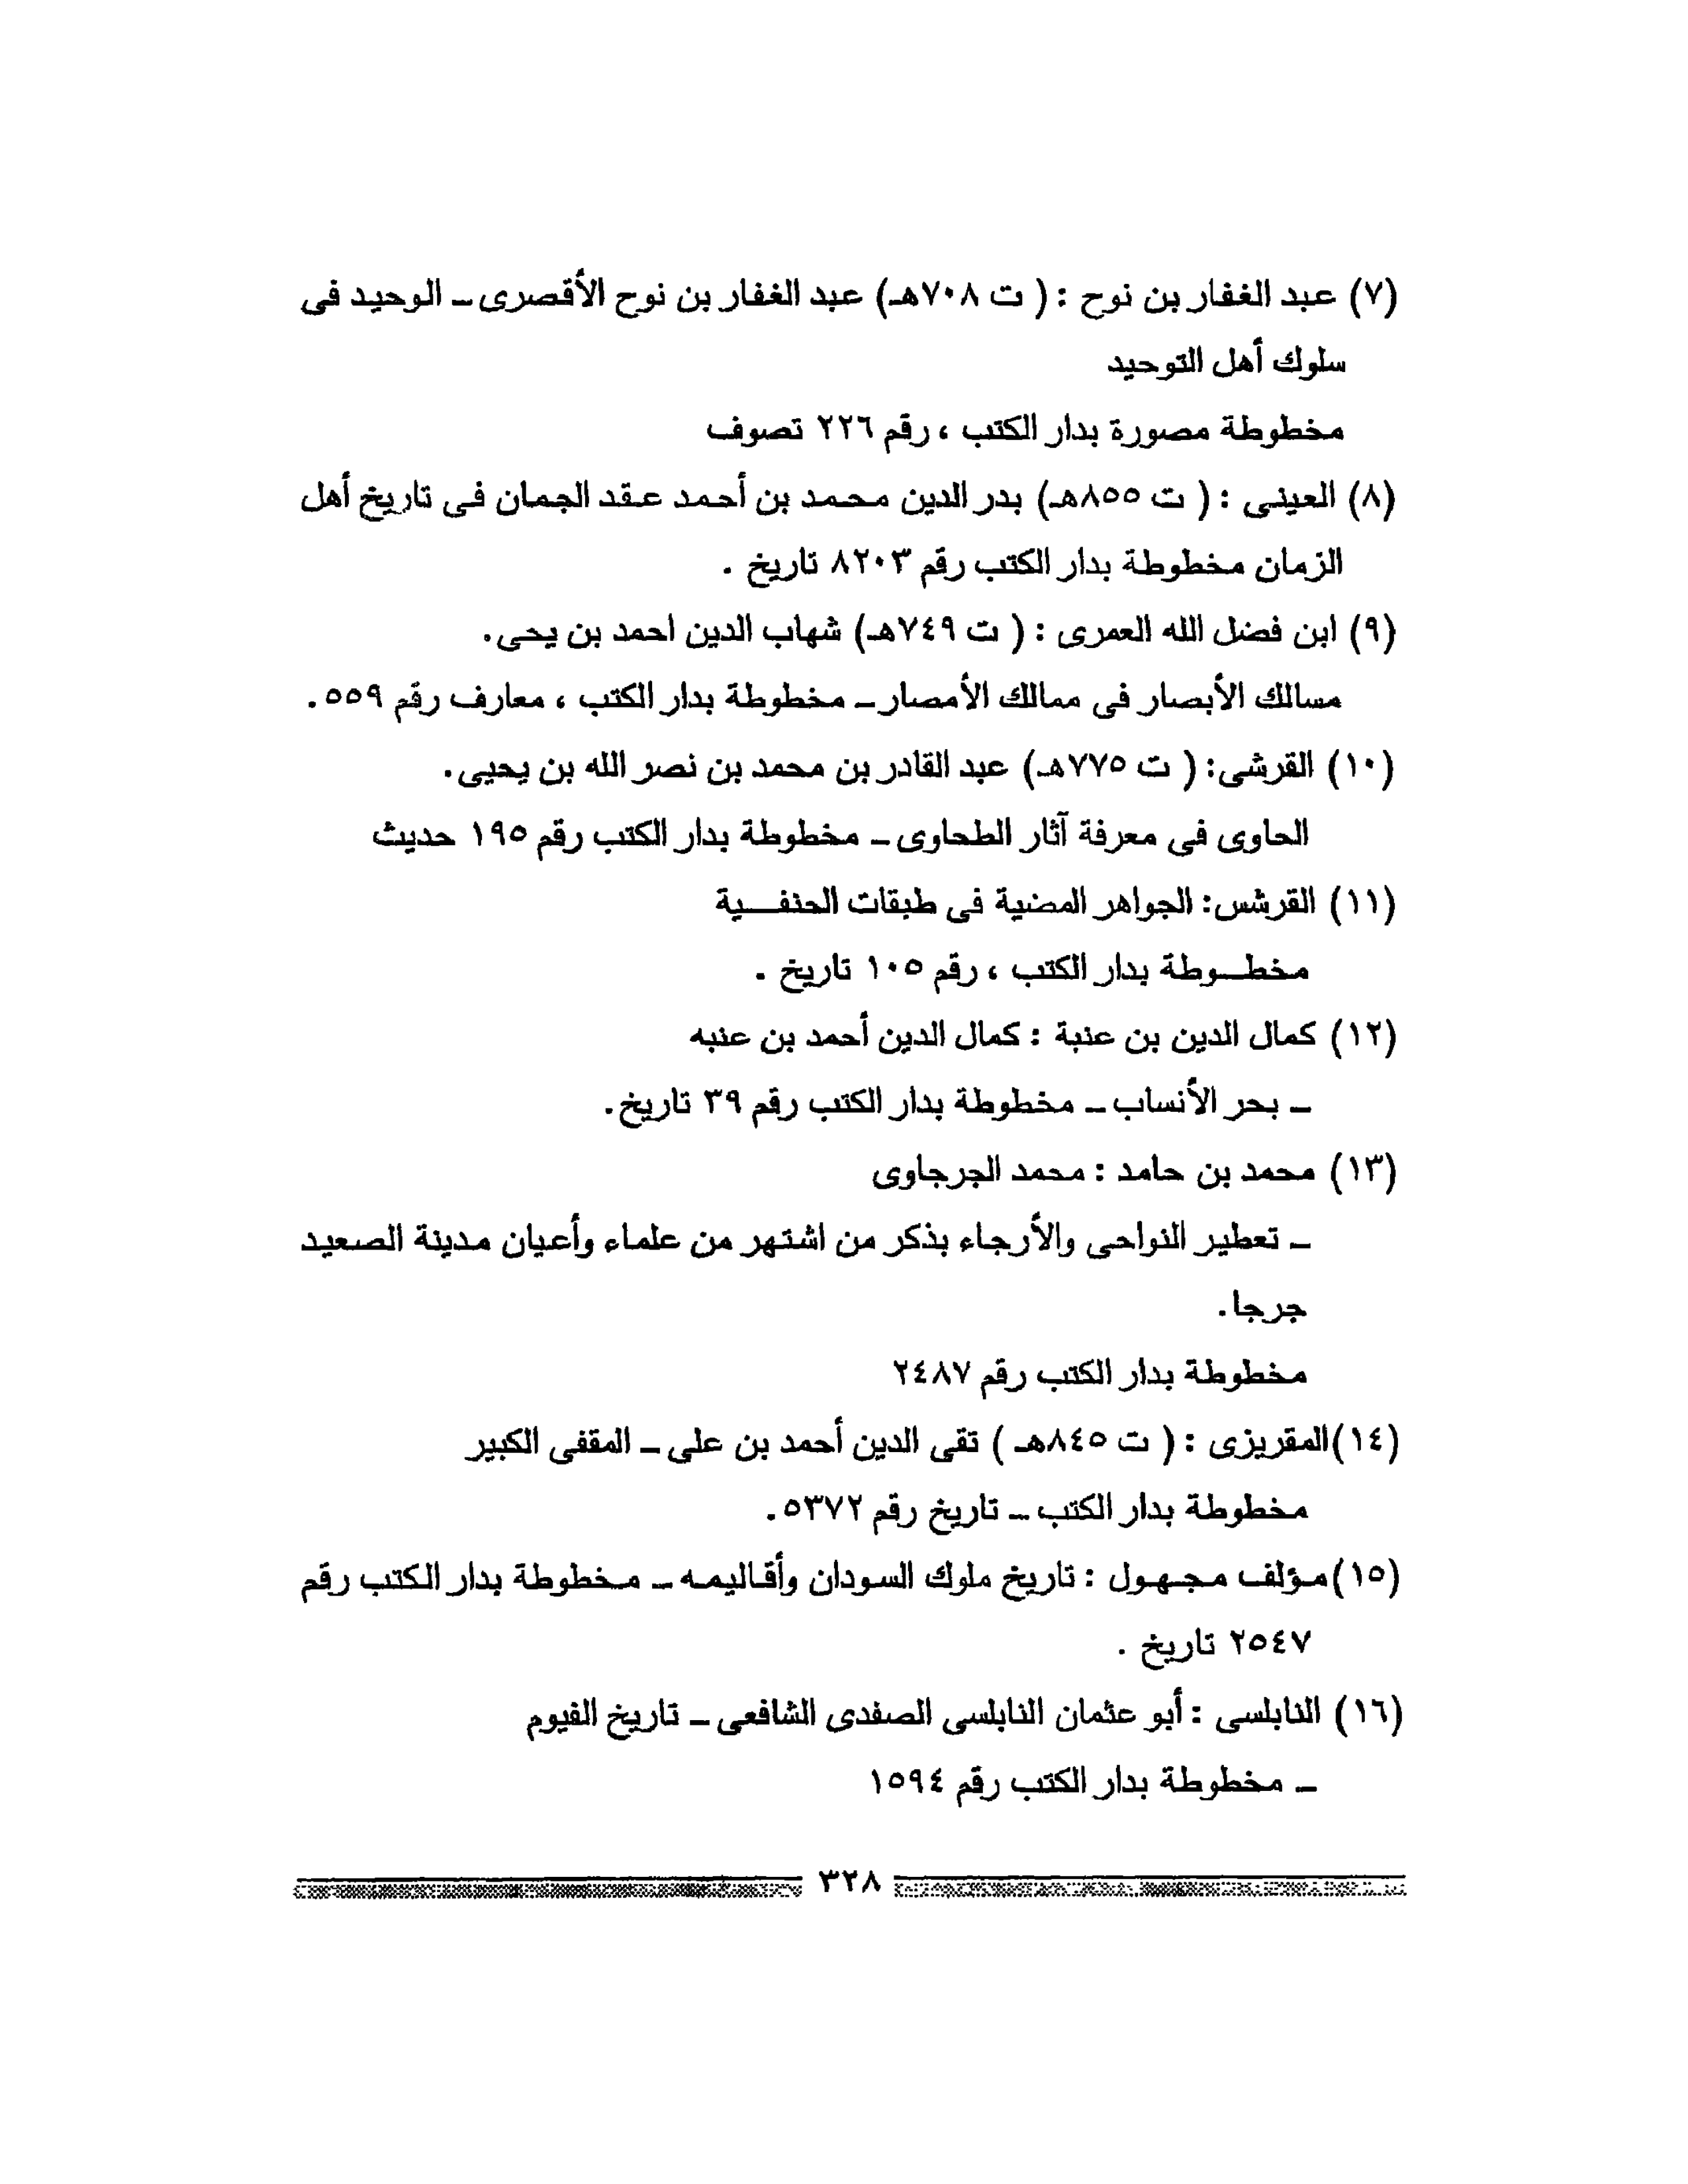 (٧) عبد الغفار بن نوح : ( ت ٧٠٨هـ) عبد الغفار بن نوح الأقصرى ـ الوحيد فى
سلوك أهل التوحيد
مخطوطة مصورة بدار الكتب ، رقم ٢٢٦ تصوف
(٨) العينى : ( ت ٨٥٥هـ) بدر الدين محمد بن أحمد عقد الجمان فى تاريخ أهل
الزمان مخطوطة بدار الكتب رقم ٨٢٠٣ تاريخ .
(٩) ابن فضل الله العمرى : ( ت ٧٤٩هـ) شهاب الدين احمد بن يحى.
مسالك الأبصار فى ممالك الأمصار ـ مخطوطة بدار الكتب ، معارف رقم ٥٥٩.
(١٠) القرشى: ( ت ٧٧٥هـ) عبد القادر بن محمد بن نصر الله بن يحيى.
الحاوى فى معرفة آثار الطحاوى ـ مخطوطة بدار الكتب رقم ١٩٥ حديث
(١١) القرشس: الجواهر المضية فى طبقات الحنفـــية
مخطــوطة بدار الكتب ، رقم ١٠٥ تاريخ .
(١٢) كمال الدين بن عنبة : كمال الدين أحمد بن عنبه
ـ بحر الأنساب ـ مخطوطة بدار الكتب رقم ٣٩ تاريخ.
(١٣) محمد بن حامد : محمد الجرجاوى
ـ تعطير النواحى والأرجاء بذكر من اشتهر من علماء وأعيان مدينة الصعيد
جرجا.
مخطوطة بدار الكتب رقم ٢٤٨٧
(١٤)المقريزى : ( ت ٨٤٥هـ ) تقى الدين أحمد بن على ـ المقفى الكبير
مخطوطة بدار الكتب ـ تاريخ رقم ٥٣٧٢.
(١٥)مؤلف مجهول : تاريخ ملوك السودان وأقاليمه ـ مخطوطة بدار الكتب رقم
٢٥٤٧ تاريخ .
(١٦) النابلسى : أبو عثمان النابلسى الصفدى الشافعى ـ تاريخ الفيوم
ـ مخطوطة بدار الكتب رقم ١٥٩٤
٣٢٨